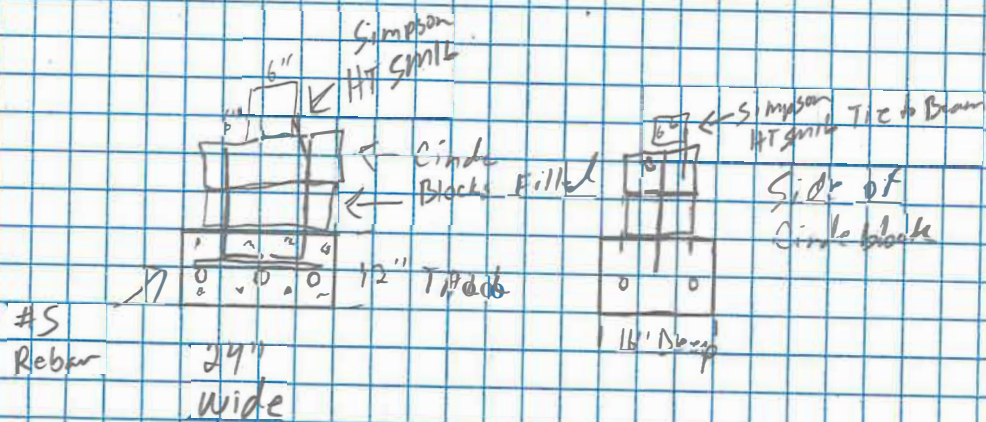 Simpson
HTSM16
6"
6"
Cinde
Blocks Filled
12" Thick
#5
Rebar
24"
wide
Simpson
HTSM16 Tie to Beam
6"
Side of
Cinde block
16" Deep